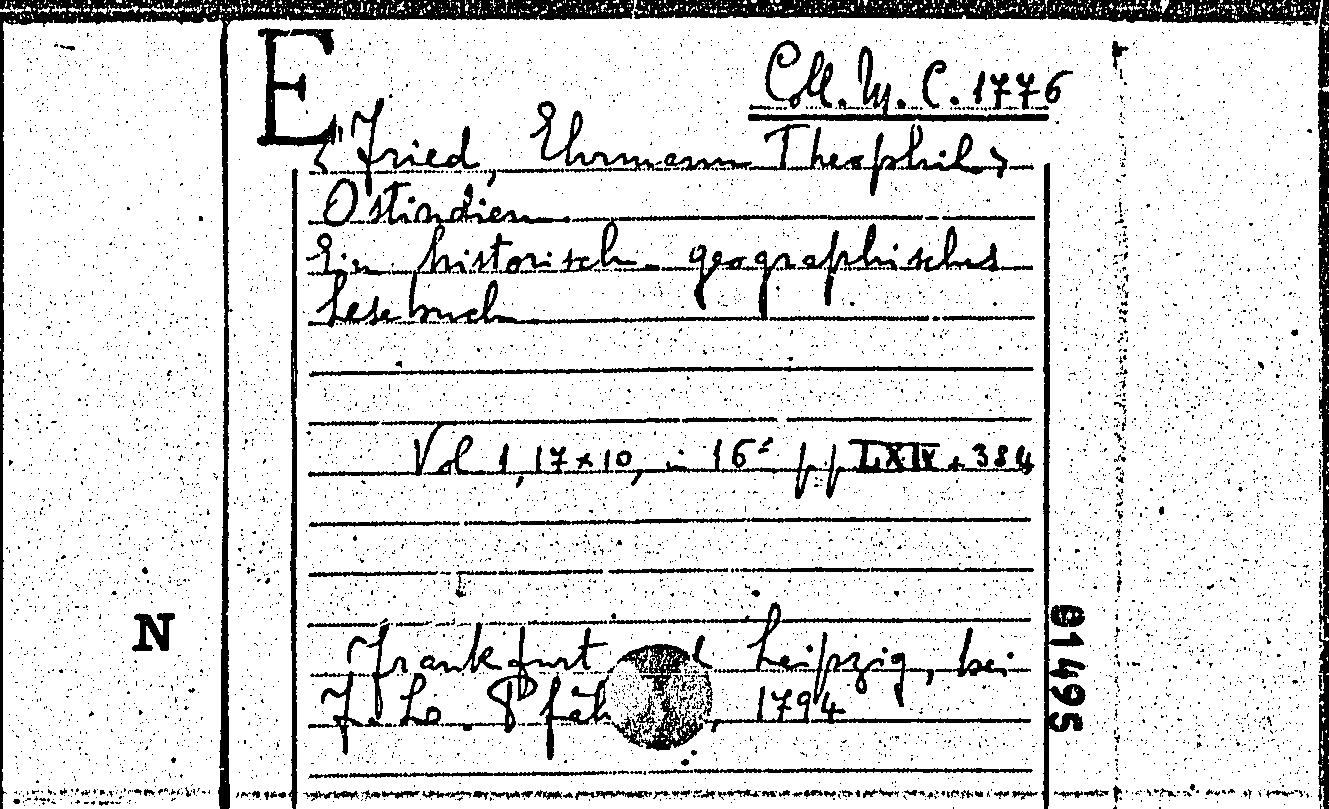 E
Coll. M. C. 1776
<"Fried, Ehrmann Theophil>
Ostindien
Ein historisch geographisches
Lesebuch
Vol 1, 17x10, in 16° pp LXIV + 384
N
Frankfurt Leipzig, bei
1794
01495